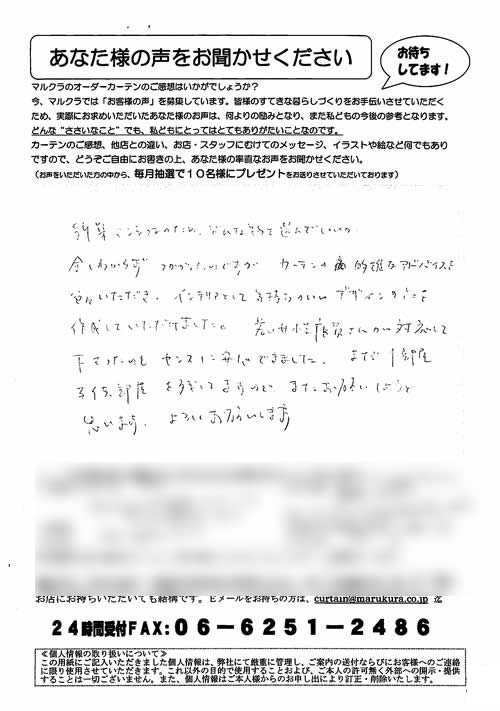 あなた様の声をお聞かせください
お待ち
してます!
マルクラのオーダーカーテンのご感想はいかがでしょうか?
今、マルクラでは「お客様の声」を募集しています。皆様のすてきな暮らしづくりをお手伝いさせていただく
ため、実際にお求めいただいたあなた様のお声は、何よりの励みとなり、また私どもの今後の参考となります。
どんな“ささいなこと”でも、私どもにとってはとてもありがたいことなのです。
カーテンのご感想、他店との違い、お店・スタッフにむけてのメッセージ、イラストや絵など何でもあり
ですので、どうぞご自由にお書きの上、あなた様の率直なお声をお聞かせください。
(お声をいただいた方の中から、毎月抽選で10名様にプレゼントをお送りさせていただいております)
新築マンションのため、どんな物を選んでいいか
全くわからず
カーテンの 的確なアドバイスを
いただき、インテリアとして デザインの
作成していただけました。若い女性店員さんが対応して
下さったのも センスに できました。まだ1部屋
子供部屋を残してますので またお願いしようと
思います。よろしくお願いします
お店にお持ちいただいても結構です。Eメールをお持ちの方は、curtain@marukura.co.jp 迄
24時間受付FAX:06-6251-2486
≪個人情報の取り扱いについて≫
この用紙にご記入いただきました個人情報は、弊社にて厳重に管理し、ご案内の送付ならびにお客様へのご連絡
に限り使用させていただきます。これ以外の目的で使用することおよび、ご本人の許可無く外部への開示・提供
することは一切ございません。また、個人情報はご本人様からのお申し出により訂正・削除いたします。